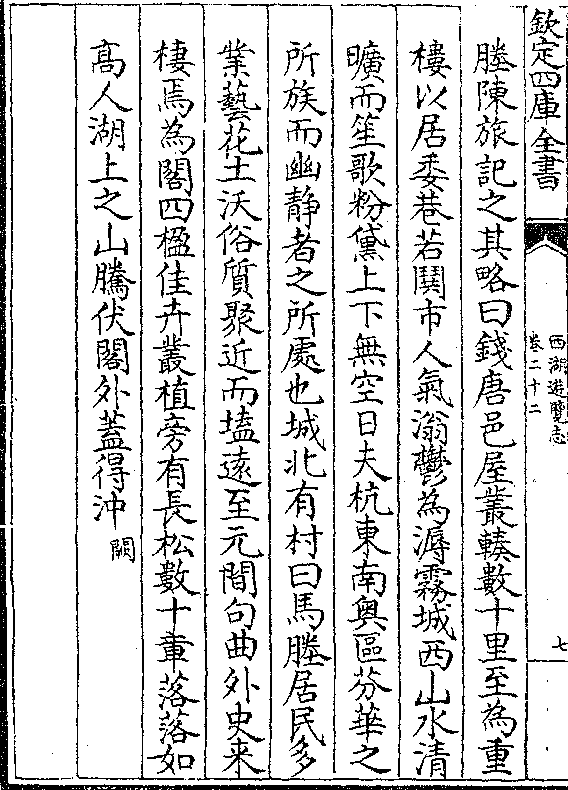 欽定四庫全書
西湖遊覽志
卷二十二
七
塍陳旅記之其略曰錢唐邑屋叢輳數十里至為重
樓以居委巷若鬪市人氣滃鬱為溽霧城西山水清
曠而笙歌粉黛上下無空日夫杭東南奥區芬華之
所族而幽靜者之所處也城北有村曰馬塍居民多
業藝花土沃俗質聚近而壒遠至元間句曲外史来
棲焉為閣四楹佳卉叢植旁有長松數十章落落如
髙人湖上之山騰伏閣外蓋得沖
闕